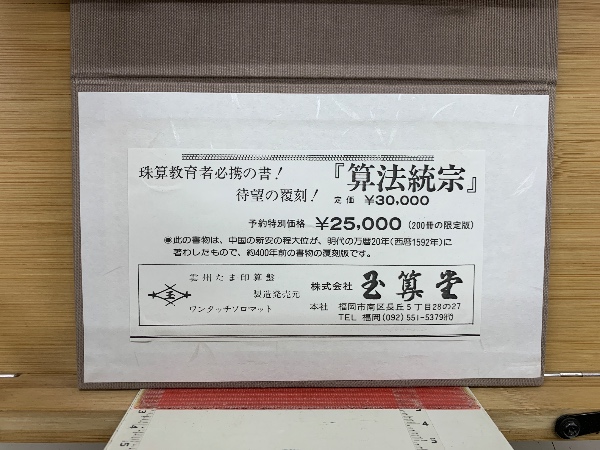 珠算教育者必携の書!
待望の覆刻!
『算法統宗』
定価 ¥30,000
予約特別価格 ¥25,000 (200冊の限定版)
◉此の書物は、中国の新安の程大位が、明代の万暦20年(西暦1592年)に
著わしたもので、約400年前の書物の復刻版です。
雲州たま印算盤
製造発売元
ワンタッチソロマット
株式会社 玉算堂
本社 福岡市南区長丘5丁目28の27
TEL 福岡(092)551-5379